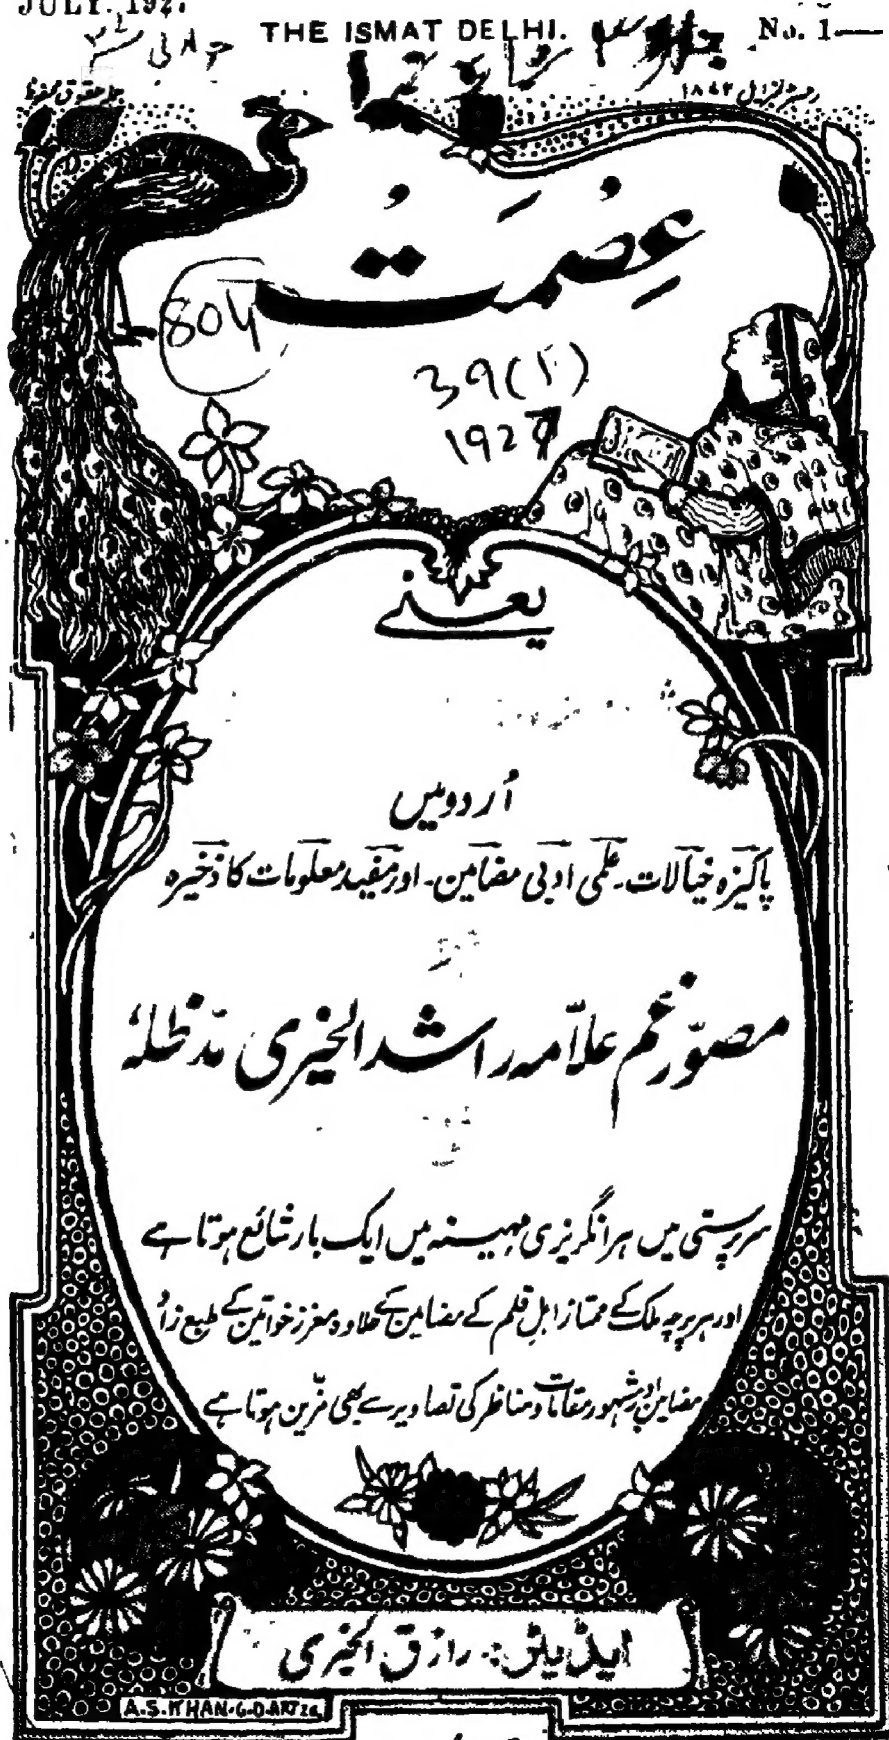 JULY. 192
THE ISMAT DELHI. No. 1
رجسٹرڈ نمبر ایل ۱۸۵۲
جملہ حقوق محفوظ
عِصْمَتُ
804
39(1)
1927
یعنے
اُردو میں
پاکیزہ خیالات۔ علمی ادبی مضامین۔ اور مفید معلومات کا ذخیرہ
مصوّر غم علاّمہ راشد الخیری مدّ ظلہٗ
سرپرستی میں ہر انگریزی مہینہ میں ایک بار شائع ہوتا ہے
اور ہر پرچہ ملک کے ممتاز اہل قلم کے مضامین کے علاوہ معزز خواتین کے طبع زاد
مضامین اور مشہور مقامات و مناظر کی تصاویر سے بھی مزّین ہوتا ہے
ایڈیٹر:۔ رازق الخیری
A.S.KHAN.G.D.ART